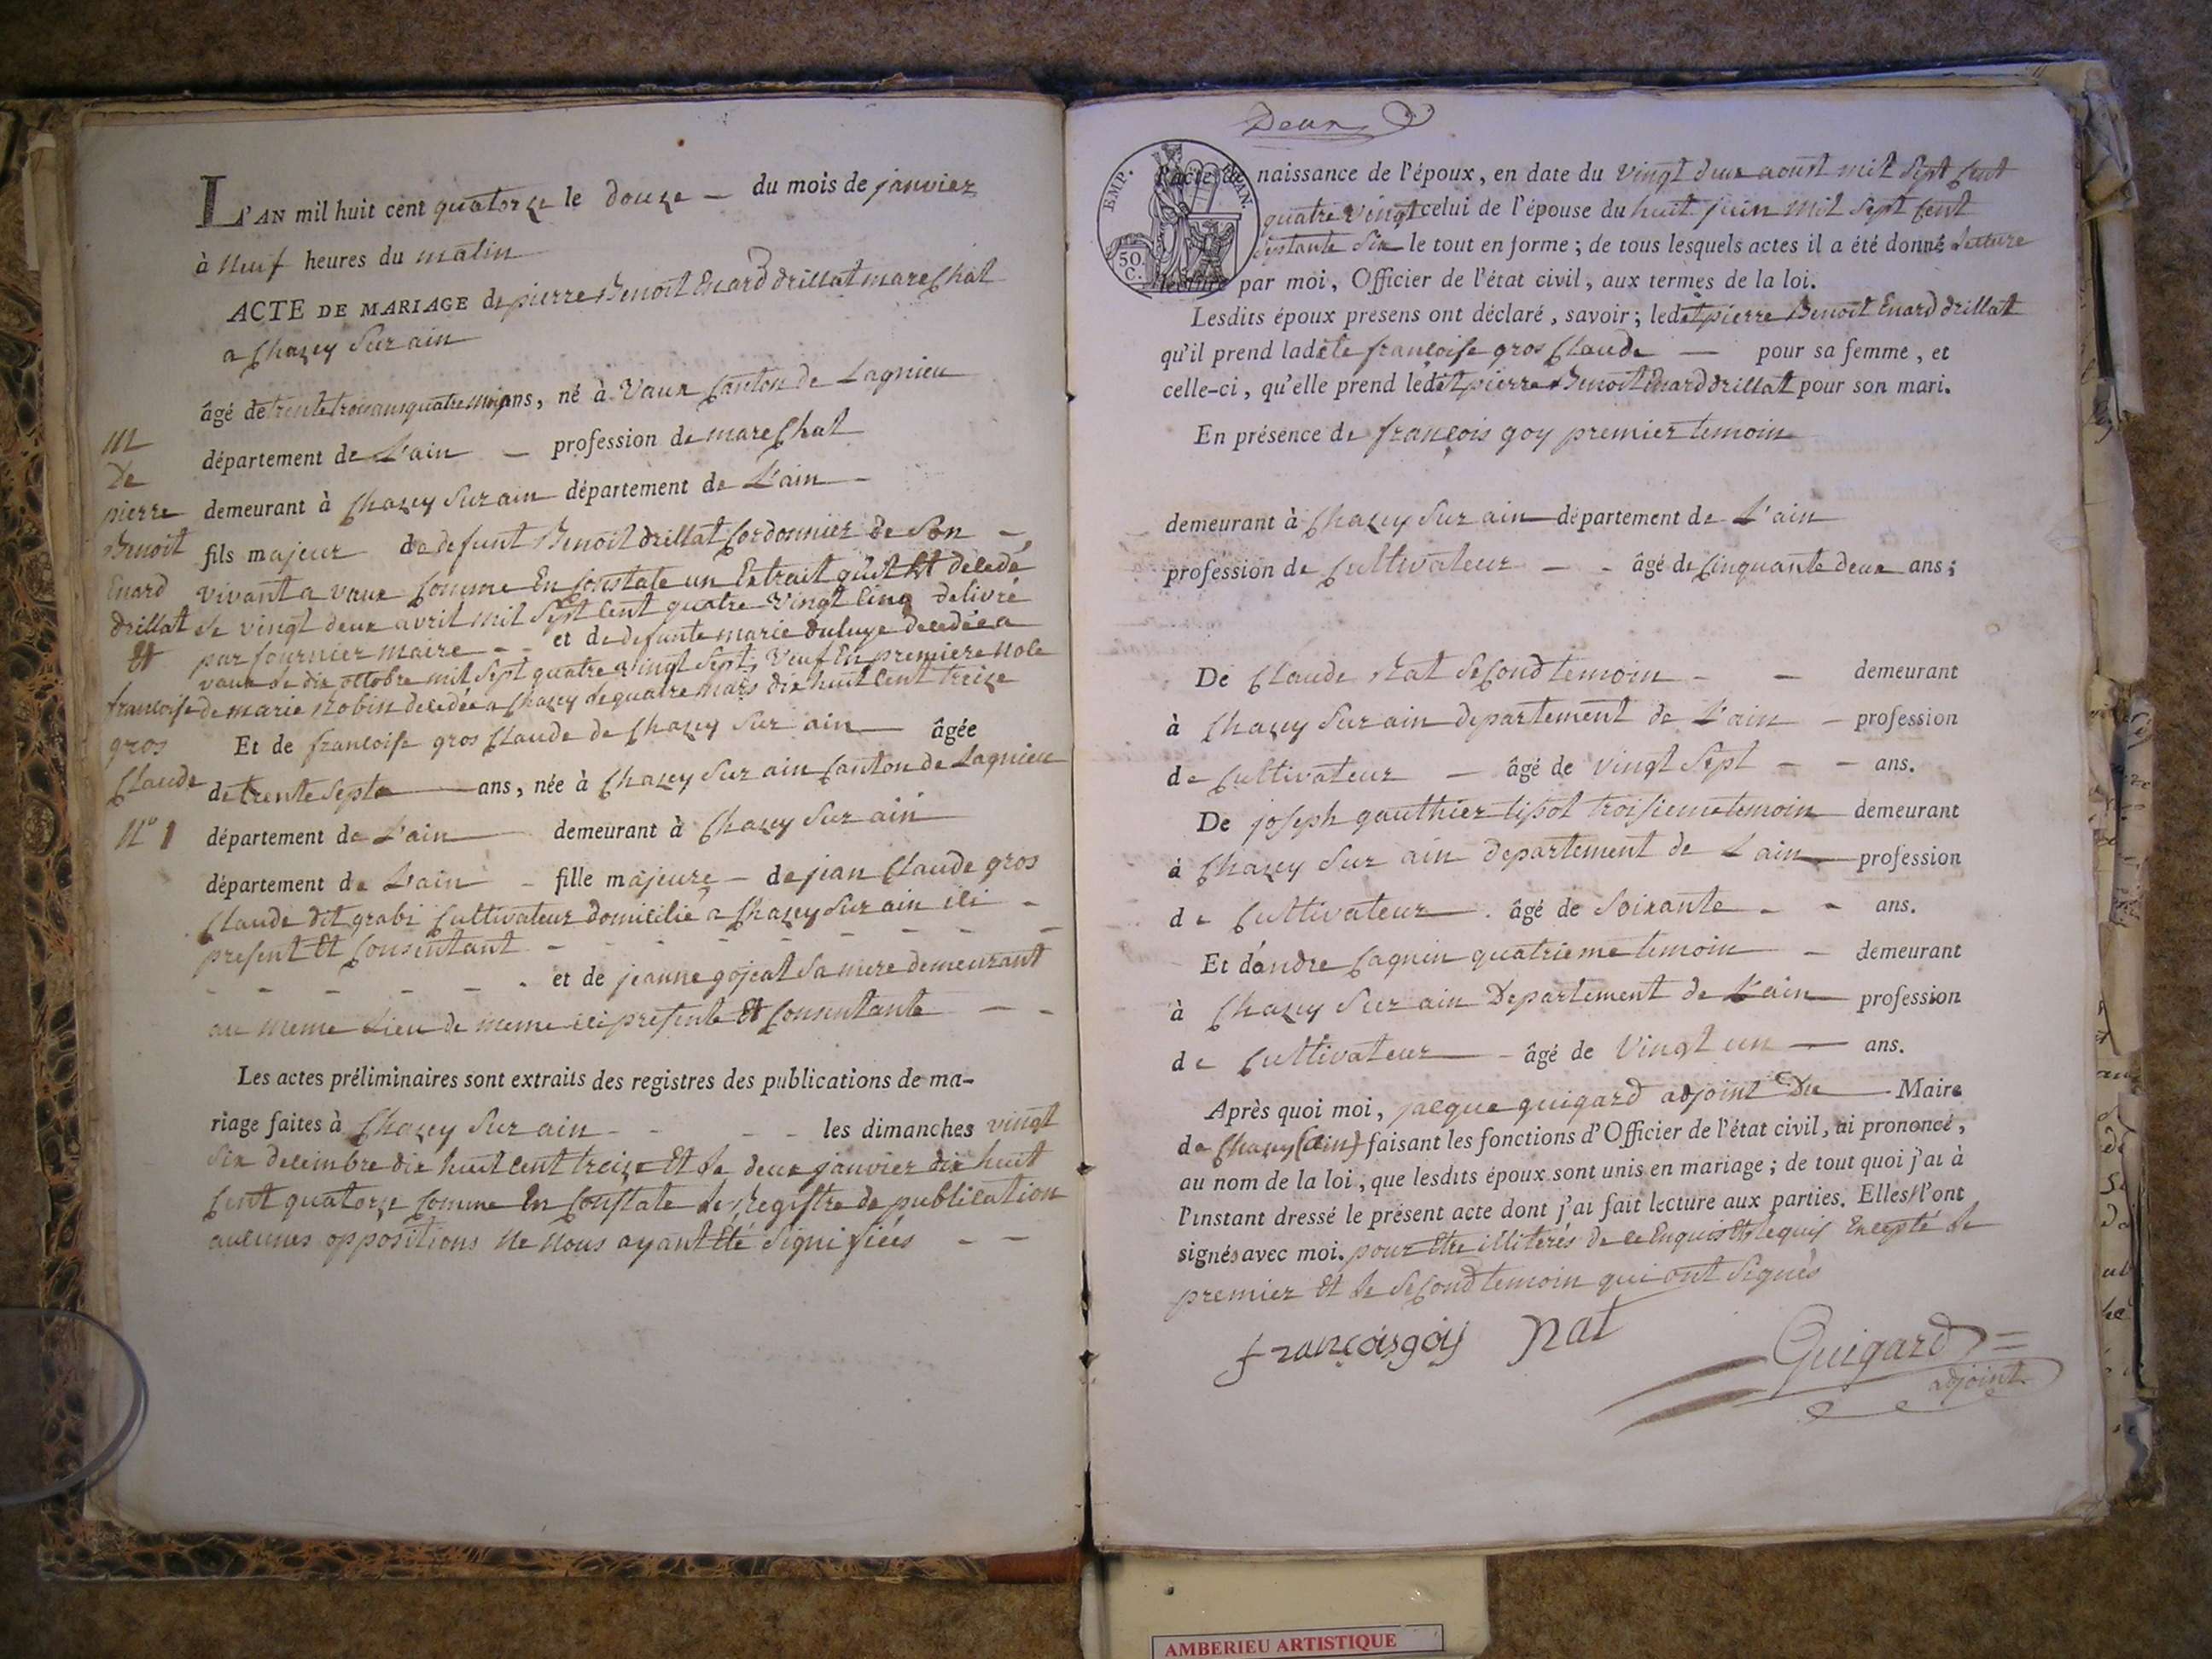 L'AN mil huit cent quatorze le douze du mois de janvier
à neuf heures du matin
ACTE DE MARIAGE de pierre Benoit Enard drillat mareChal
a Chazey Sur ain
âgé de trente trois ans quatre mois ans, né à Vaux Canton de Lagnieu
département de L'ain profession de mareChal
demeurant à Chazey Sur ain département de L'ain
fils majeur de defunt Benoit drillat Cordonnier de Son
vivant a vaux Comme En Constate un Extrait qu'il Est décedé
Le vingt deux avril mil Sept Cent quatre Vingt Cinq delivré
par fournier maire et de defunte marie duluye decedée a
vaux Le dix octobre mil Sept quatre vingt Sept, Veuf En premiere Noce
de marie Robin decedée a Chazey le quatre mars dix huit Cent treize
Et de francoise gros Claude de Chazey Sur ain âgée
de trente Septe ans, née à Chazey Sur ain Canton de Lagnieu
département de L'ain demeurant à Chazey Sur ain
département de L'ain fille majeure de jean Claude gros
Claude dit grabi Cultivateur domicilié a Chazey Sur ain ici
present Et Consentant
et de jeanne gojeat Sa mere demeurant
au meme Lieu de meme ici presente Et Consentante
Les actes préliminaires sont extraits des registres des publications de ma-
riage faites à Chazey Sur ain les dimanches vingt
Six decembre dix huit Cent treize Et Le deux janvier dix huit
Cent quatorze Comme En Constate Le Registre de publication
aucunes oppositions Ne Nous ayant Eté Signifiées
M
De
pierre
Benoit
Enard
drillat
Et
francoise
gros
Claude
N° 1
Deux
EMP. FRAN.
50.
C.
l'acte de naissance de l'époux, en date du vingt deux aoust mil Sept Cent
quatre vingt celui de l'épouse du huit juin mil Sept Cent
Septante Six le tout en forme ; de tous lesquels actes il a été donné Lecture
lecture par moi, Officier de l'état civil, aux termes de la loi.
Lesdits époux présens ont déclaré, savoir ; ledit pierre Benoit Enard drillat
qu'il prend ladite françoise gros Claude pour sa femme, et
celle-ci, qu'elle prend ledit pierre Benoit Enard drillat pour son mari.
En présence de françois goy premier temoin
demeurant à Chazey Sur ain département de L'ain
profession de Cultivateur âgé de Cinquante deux ans ;
De Claude Nat Second temoin demeurant
à Chazey Sur ain departement de L'ain profession
de Cultivateur âgé de Vingt Sept ans.
De joseph gauthier lipot troisieme temoin demeurant
à Chazey Sur ain departement de L'ain profession
de Cultivateur âgé de Soixante ans.
Et d'andre Cagnin quatrieme temoin demeurant
à Chazey Sur ain Departement de L'ain profession
de Cultivateur âgé de Vingt un ans.
Après quoi moi, jacque guigard adjoint Du Maire
de Chazey (ain) faisant les fonctions d'Officier de l'état civil, ai prononcé,
au nom de la loi, que lesdits époux sont unis en mariage ; de tout quoi j'ai à
l'instant dressé le présent acte dont j'ai fait lecture aux parties. Elles N'ont
signés avec moi. pour Etre illiterés de ce Enquis Et Requis Excepté Le
premier Et Le Second temoin qui ont Signés
françois goy Nat
Guigard
adjoint
AMBERIEU ARTISTIQUE